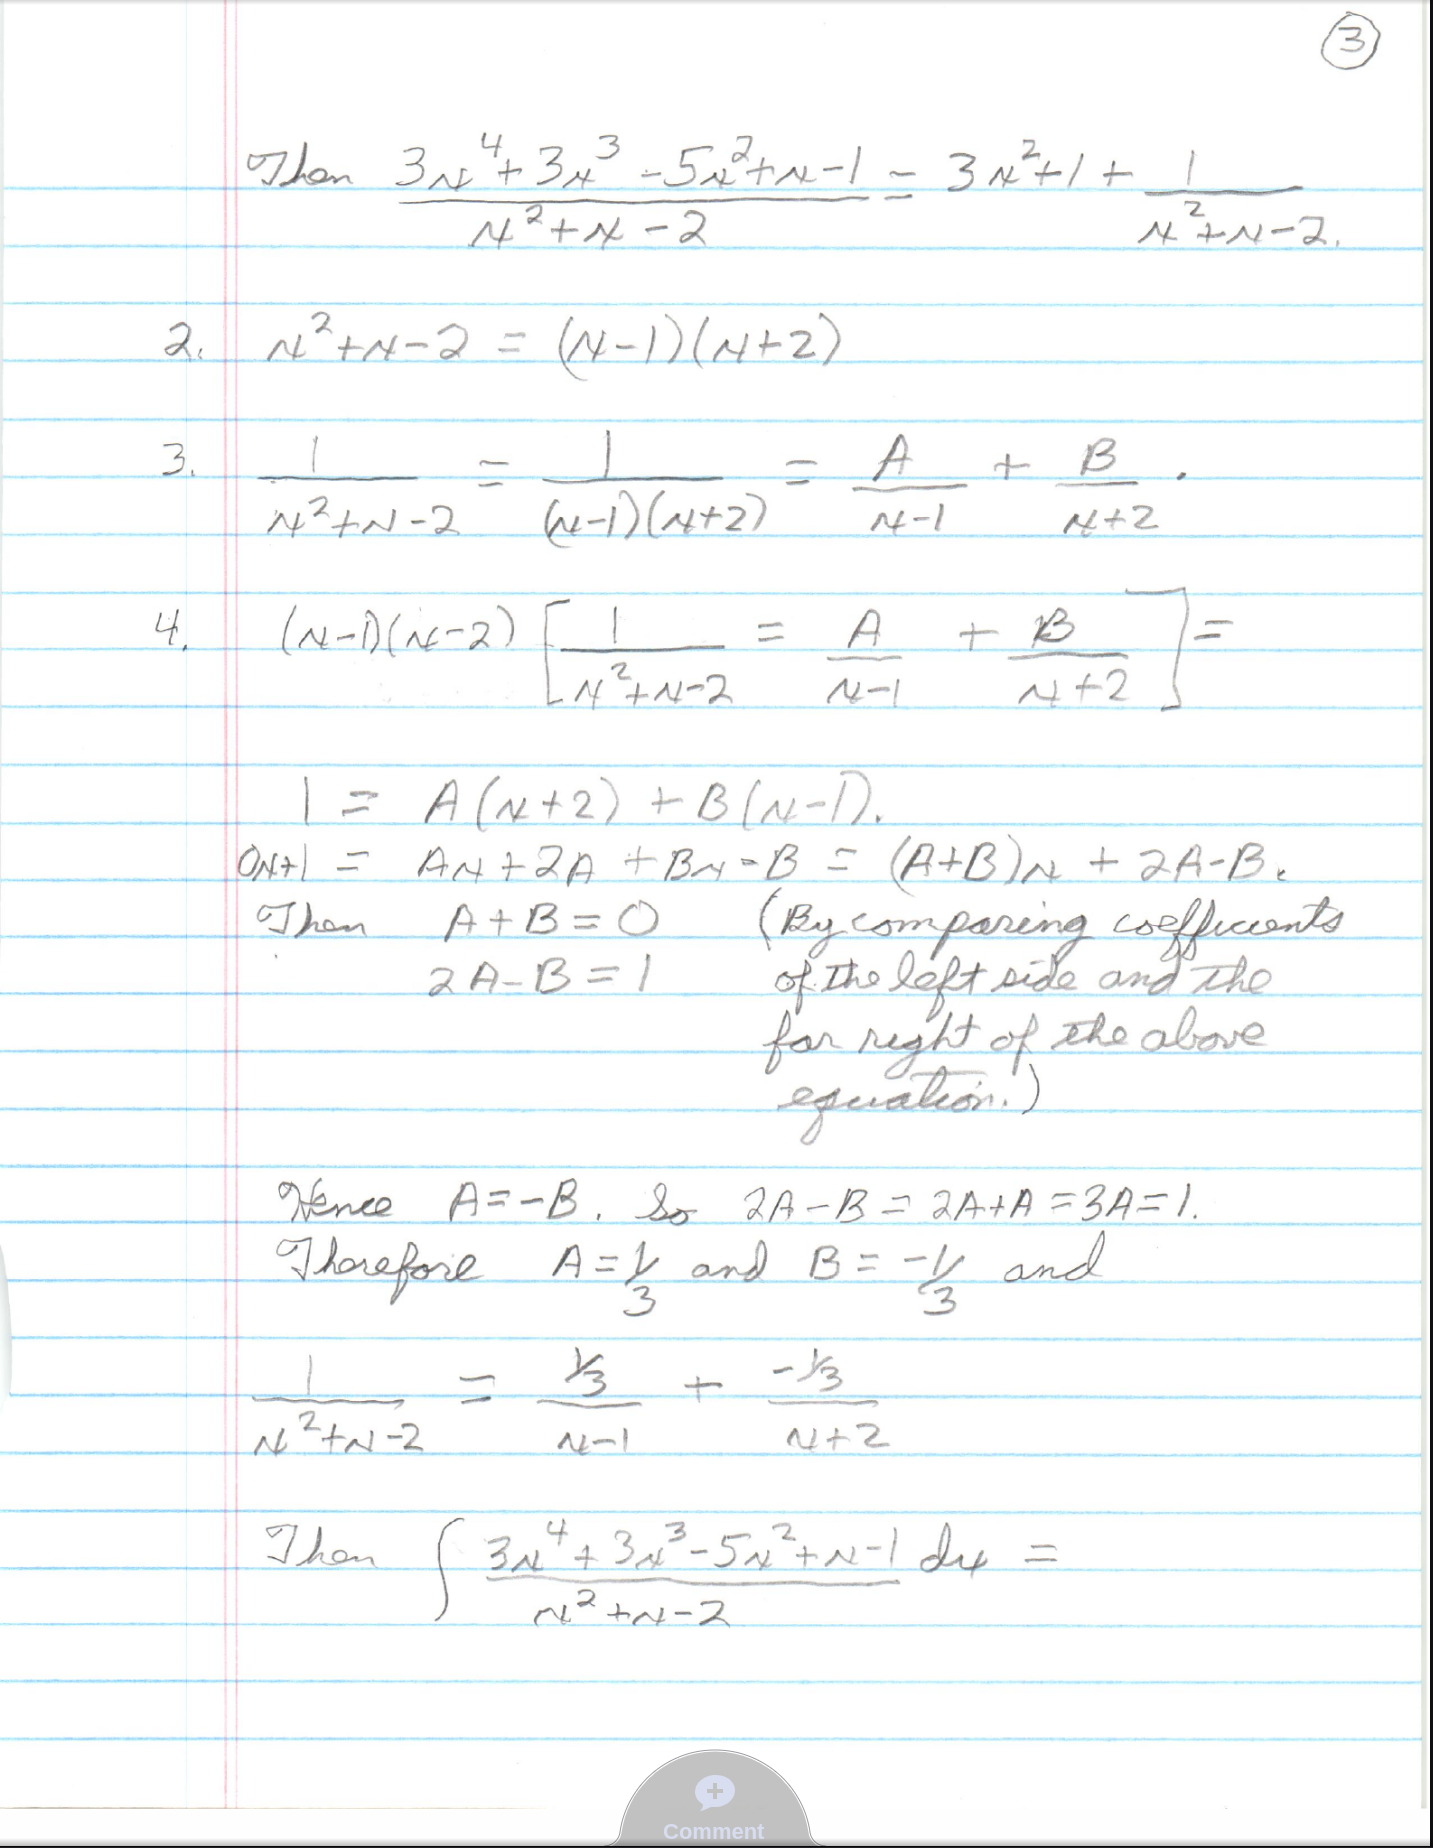 ③
Then (3x⁴+3x³-5x²+x-1)/(x²+x-2) = 3x²+1+ 1/(x²+x-2).
2. x²+x-2 = (x-1)(x+2)
3. 1/(x²+x-2) = 1/((x-1)(x+2)) = A/(x-1) + B/(x+2).
4. (x-1)(x-2) [1/(x²+x-2) = A/(x-1) + B/(x+2)] =
1 = A(x+2) + B(x-1).
0x+1 = Ax+2A+Bx-B = (A+B)x + 2A-B.
Then A+B=0 (By comparing coefficients
2A-B=1 of the left side and the
far right of the above
equation.)
Hence A=-B. So 2A-B=2A+A=3A=1.
Therefore A=1/3 and B=-1/3 and
1/(x²+x-2) = (1/3)/(x-1) + (-1/3)/(x+2)
Then ∫ (3x⁴+3x³-5x²+x-1)/(x²+x-2) dx =
Comment